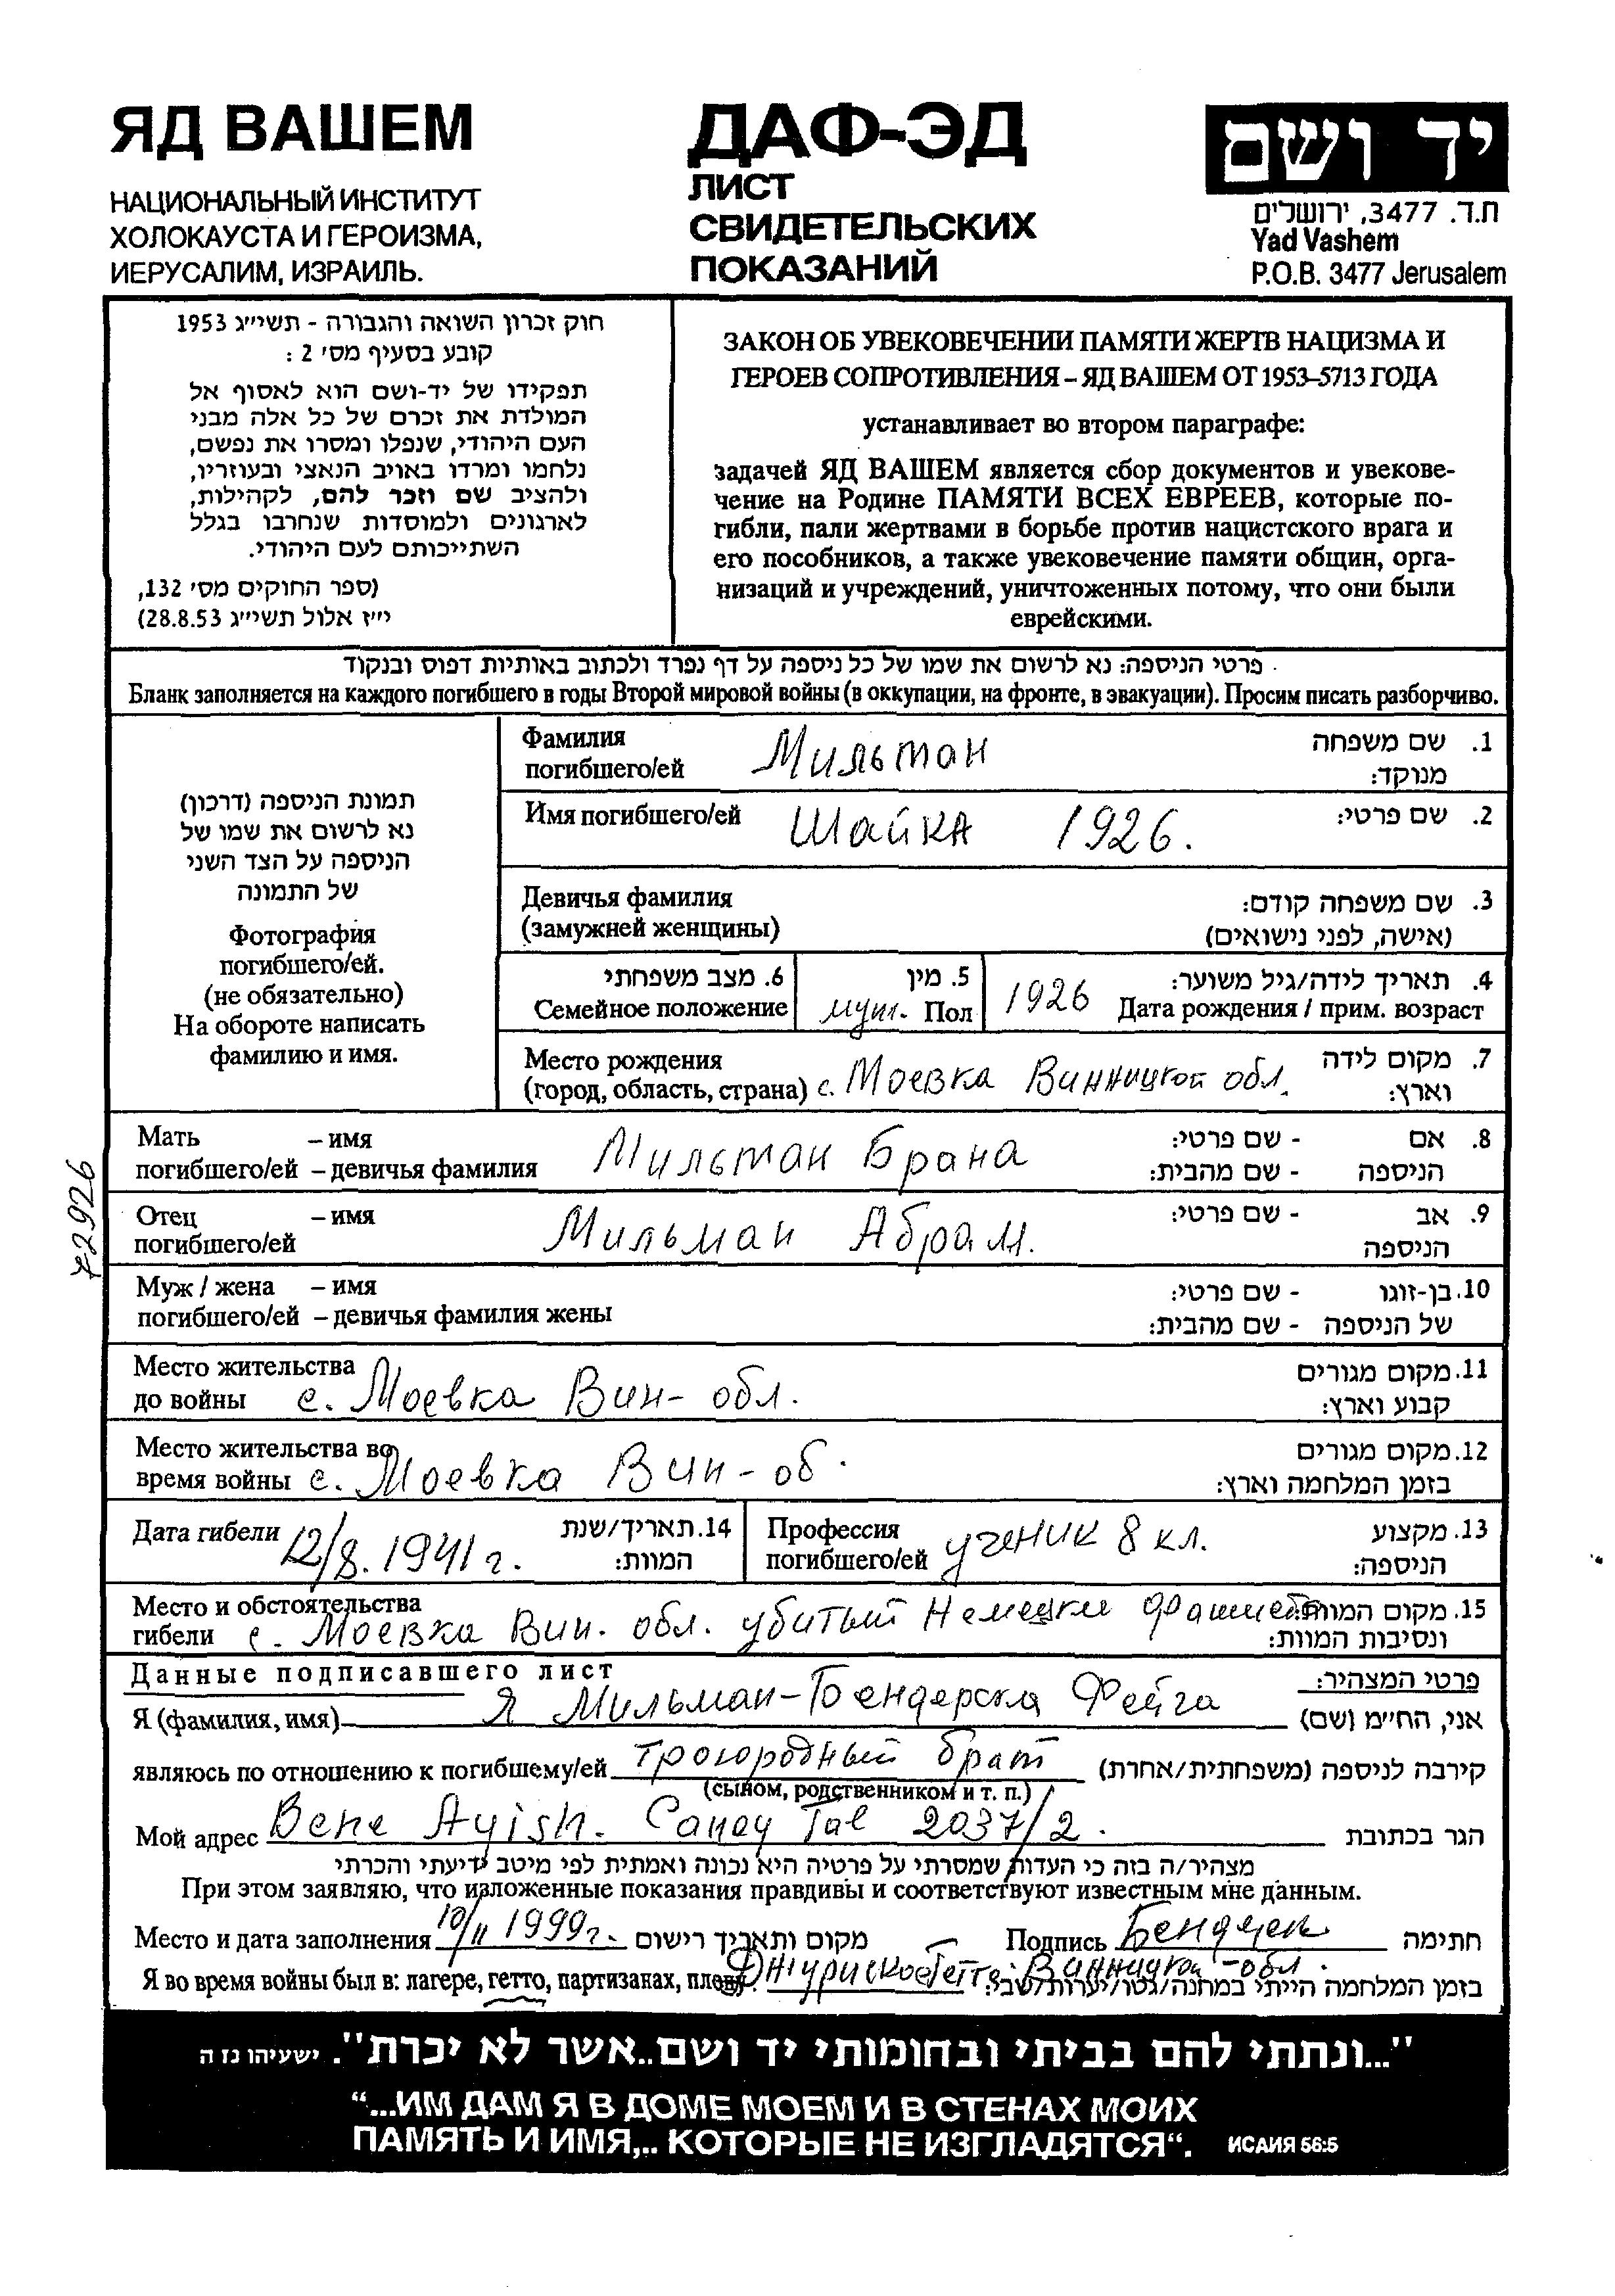 ЯД ВАШЕМ
НАЦИОНАЛЬНЫЙ ИНСТИТУТ
ХОЛОКАУСТА И ГЕРОИЗМА,
ИЕРУСАЛИМ, ИЗРАИЛЬ.
ДАФ-ЭД
ЛИСТ
СВИДЕТЕЛЬСКИХ
ПОКАЗАНИЙ
יד ושם
ת.ד. 3477, ירושלים
Yad Vashem
P.O.B. 3477 Jerusalem
חוק זכרון השואה והגבורה - תשי״ג 1953
קובע בסעיף מס׳ 2 :
תפקידו של יד-ושם הוא לאסוף אל
המולדת את זכרם של כל אלה מבני
העם היהודי, שנפלו ומסרו את נפשם,
נלחמו ומרדו באויב הנאצי ובעוזריו,
ולהציב שם וזכר להם, לקהילות,
לארגונים ולמוסדות שנחרבו בגלל
השתייכותם לעם היהודי.
(ספר החוקים מס׳ 132,
י״ז אלול תשי״ג 28.8.53)
ЗАКОН ОБ УВЕКОВЕЧЕНИИ ПАМЯТИ ЖЕРТВ НАЦИЗМА И
ГЕРОЕВ СОПРОТИВЛЕНИЯ – ЯД ВАШЕМ ОТ 1953–5713 ГОДА
устанавливает во втором параграфе:
задачей ЯД ВАШЕМ является сбор документов и увекове-
чение на Родине ПАМЯТИ ВСЕХ ЕВРЕЕВ, которые по-
гибли, пали жертвами в борьбе против нацистского врага и
его пособников, а также увековечение памяти общин, орга-
низаций и учреждений, уничтоженных потому, что они были
еврейскими.
פרטי הניספה: נא לרשום את שמו של כל ניספה על דף נפרד ולכתוב באותיות דפוס ובנקוד
Бланк заполняется на каждого погибшего в годы Второй мировой войны (в оккупации, на фронте, в эвакуации). Просим писать разборчиво.
תמונת הניספה (דרכון)
נא לרשום את שמו של
הניספה על הצד השני
של התמונה
Фотография
погибшего/ей.
(не обязательно)
На обороте написать
фамилию и имя.
Фамилия Мильман 1. שם משפחה
погибшего/ей מנוקד:
Имя погибшего/ей Шайка 1926. 2. שם פרטי:
Девичья фамилия 3. שם משפחה קודם:
(замужней женщины) (אישה, לפני נישואים)
6. מצב משפחתי 5. מין 4. תאריך לידה/גיל משוער:
Семейное положение муж. Пол 1926 Дата рождения / прим. возраст
Место рождения 7. מקום לידה
(город, область, страна) с. Моевка Винницкой обл. וארץ:
Мать – имя Мильман Брана 8. אם - שם פרטי:
погибшего/ей – девичья фамилия הניספה - שם מהבית:
Отец – имя Мильман Абрам. 9. אב - שם פרטי:
погибшего/ей הניספה
Муж / жена – имя 10. בן-זוגו - שם פרטי:
погибшего/ей – девичья фамилия жены של הניספה - שם מהבית:
Место жительства 11. מקום מגורים
до войны с. Моевка Вин- обл. קבוע וארץ:
Место жительства во 12. מקום מגורים
время войны с. Моевка Вин-об. בזמן המלחמה וארץ:
Дата гибели 12/8. 1941 г. 14. תאריך/שנת המוות:
Профессия погибшего/ей ученик 8 кл. 13. מקצוע הניספה:
Место и обстоятельства 15. מקום המוות
гибели с. Моевка Вин. обл. убитый Немецки ונסיבות המוות:
Данные подписавшего лист פרטי המצהיר:
Я (фамилия, имя) Я Мильман-Бендерска Фейга אני, הח״מ (שם)
являюсь по отношению к погибшему/ей трогородный брат קירבה לניספה (משפחתית/אחרת)
(сыном, родственником и т. п.)
Мой адрес Bene Ayish. Caney Tal 2037/2. הגר בכתובת
מצהיר/ה בזה כי העדות שמסרתי על פרטיה היא נכונה ואמתית לפי מיטב ידיעתי והכרתי
При этом заявляю, что изложенные показания правдивы и соответствуют известным мне данным.
Место и дата заполнения 10/II 1999г. מקום ותאריך רישום Подпись חתימה
Я во время войны был в: лагере, гетто, партизанах, плену. Винницкой-обл. בזמן המלחמה הייתי במחנה/גטו/יערות/שבי:
72926
"...ונתתי להם בביתי ובחומותי יד ושם..אשר לא יכרת". ישעיהו נז ה
“...ИМ ДАМ Я В ДОМЕ МОЕМ И В СТЕНАХ МОИХ
ПАМЯТЬ И ИМЯ,.. КОТОРЫЕ НЕ ИЗГЛАДЯТСЯ“. ИСАИЯ 56:5